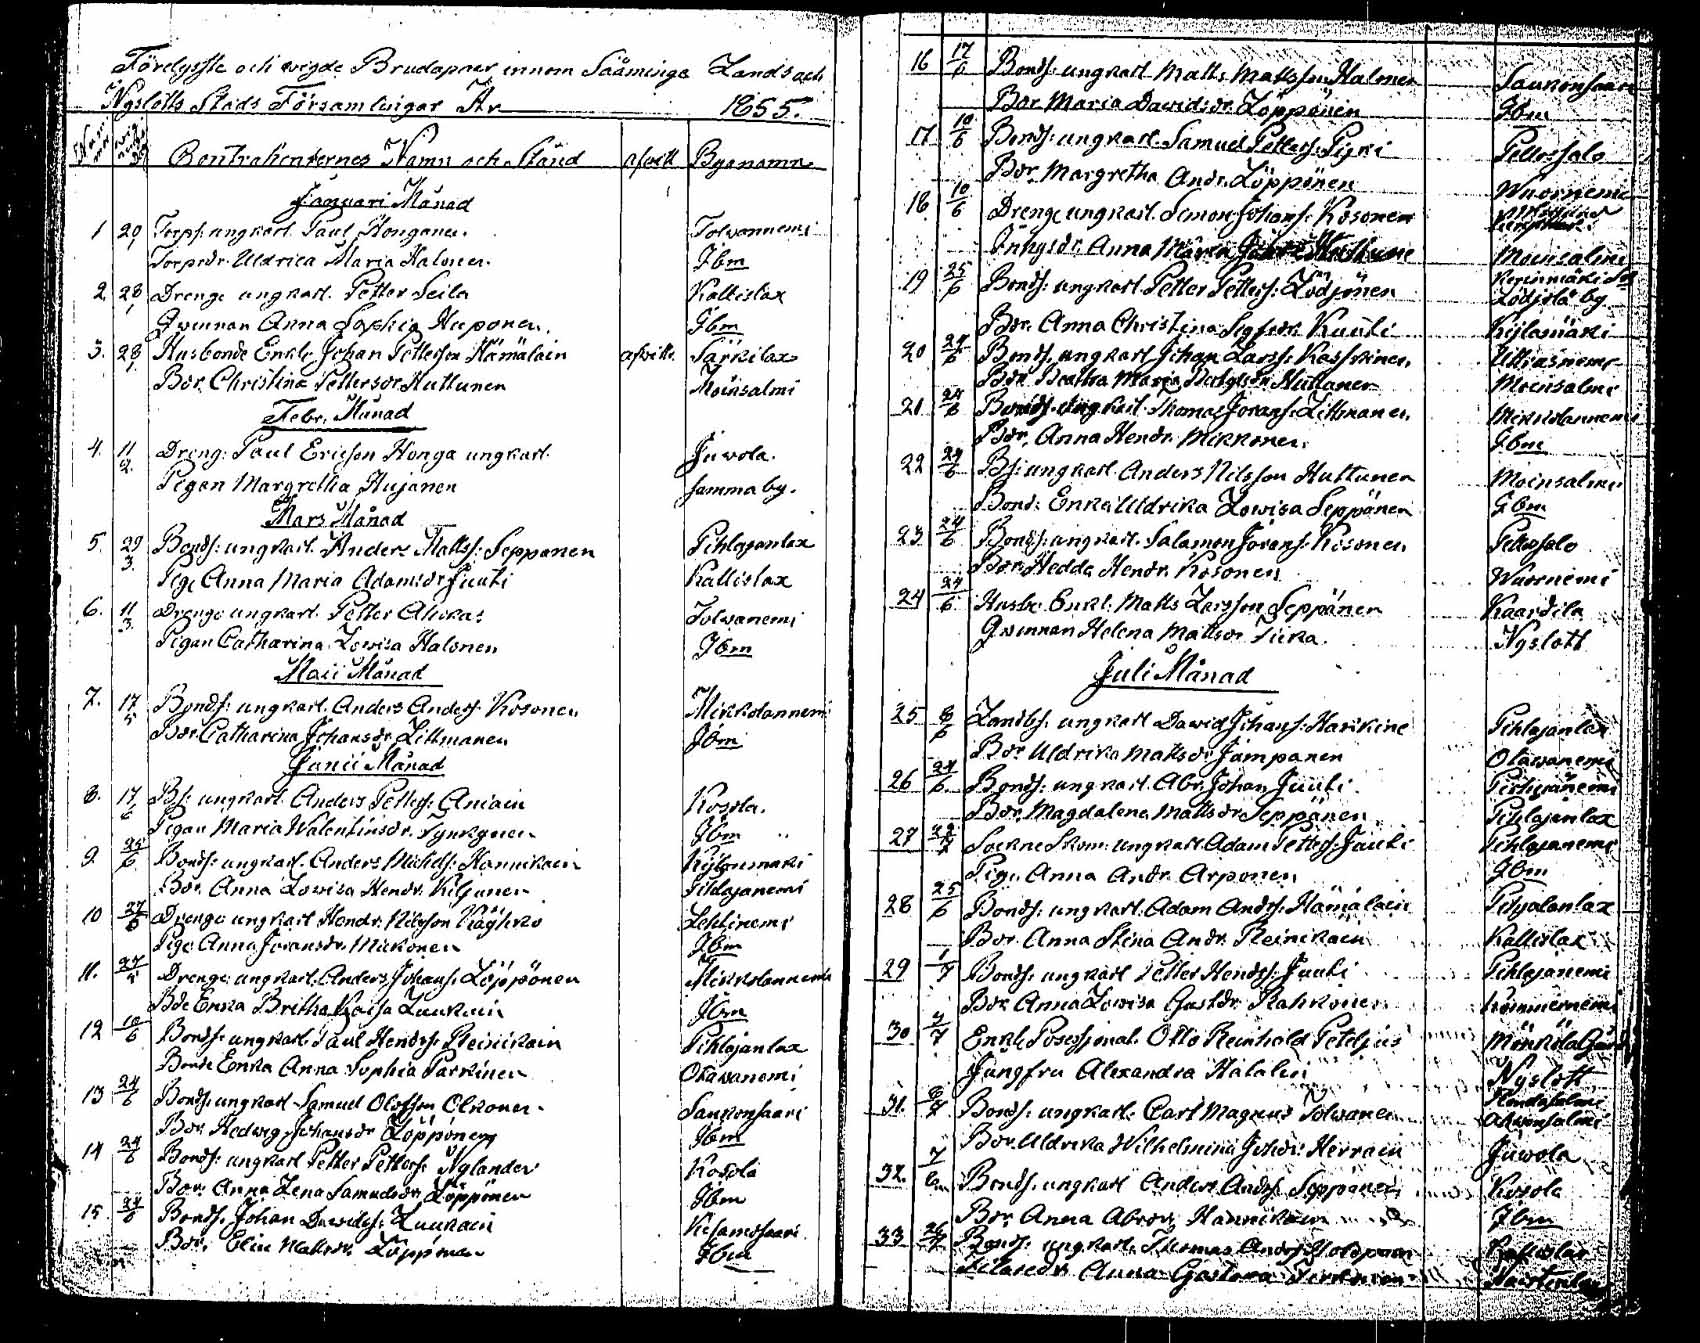 Förelyste och wigde Brudapaar innom Sääminge Lands och
Nyslotts Stads Församlingar År 1855.
Contrahenternes Namn och Stånd afvitt Byanamn
Januari Månad
1 20/1 Torps: ungkarl. Paul Honganen. Tolvannemi
Torpedr. Uldrica Maria Halonen. Ibm
2 28/1 Dreng: ungkarl. Petter Seila Kallislax
Qwinnan Anna Sophia Huponen. Ibm
3. 28/1 Husbonde Enkl: Johan Petterson Hämäläin afvitt. Särkilax
Bdr. Christina Pettersdr Huttunen Moinsalmi
Febr. Månad
4. 11/2. Dreng: Paul Ericson Honga ungkarl. Juvola.
Pigan Margretha Hujanen samma by.
Mars Månad
5. 29/3. Bonds: ungkarl. Anders Matts: Seppänen Pihlajanlax
Pig: Anna Maria Adamsdr Juuti Kallislax
6. 11/3 Dreng: ungkarl. Petter Tolvanemi
Pigan Catharina Lowisa Halonen Ibm
Maii Månad
7. 17/5 Bonds: ungkarl. Anders Anders: Kosonen Mikkolannemi
Bdr. Catharina Johansdr Littmanen Ibm
Junii Månad
8. 17/6 Bs: ungkarl. Anders Petters: Aniain Kosola.
Pigan Maria Walentinsdr. Tynkynen Ibm
9. 25/6 Bonds: ungkarl. Anders Michels: Hannikain
Bdr. Anna Lowisa Hendr. Kiljunen Pihlajanemi
10 27/6 Dreng: ungkarl Hendr. Nilsson Lehtinemi
Pig: Anna Joransdr. Mikonen Ibm
11. 27/5 Dreng: ungkarl. Anders Johans: Löppönen Mikkolannemi
Bde Enka Britha Kaisa Luukain Ibm
12 10/6 Bonds: ungkarl. Paul Hendrs: Reinikain Pihlajanlax
Bonde Enka Anna Sophia Parkinen Otavanemi
13 24/6 Bonds: ungkarl Samuel Olofsson Olkonen. Saukonsaari
Bdr. Hedwig Johansdr Löppönen Ibm
14 24/6 Bonds: ungkarl Petter Petters: Nylander Kosola
Bdr. Anna Lena Samuelsdr. Löppönen Ibm
15 24/6 Bonds. Johan Davids: Luukain
Bdr. Elin Mattsdr. Löppönen Ibm
16 17/6 Bonds: ungkarl Matts Mattsson Halonen Saukonsaari
Bdr Maria Davidsdr. Löppönen Ibm
17 10/6 Bonds: ungkarl. Samuel Petters: Pyri Pellossalo
Bdr. Margretha Andr. Löppönen Wuornemi
18 10/6 Dreng: ungkarl. Simon Johans: Kosonen
Inhysdr. Anna Maria Moinsalmi
19 25/6 Bonds: ungkarl. Petter Petters: Lödjönen Lödjölä by.
Bdr. Anna Christina Sigfrdr. Kuuti Kijlamäki
20 24/6 Bonds. ungkarl Johan Lars: Kosonen Uttiasnemi
Bdr. Beatha Maria Huttunen Moinsalmi
21 24/6 Bonds. ungkarl. Thomas Jorans: Littmanen. Mikkolannemi
Bdr. Anna Hendr. Mikkonen. Ibm
22 24/6 Bs: ungkarl. Anders Nilsson Huttunen Moinsalmi
Bond: Enka Uldrika Lowisa Seppönen Ibm
23. 24/6 Bonds: ungkarl. Salamon Jorans: Kosonen Pellossalo
Bdr. Hedda Hendr. Kosonen Wuornemi
24 24/6 Husb: Enkl: Matts Larsson Seppänen Kaartila
Qwinnan Helena Mattsdr Nyslott
Juli Månad
25 8/6 Landbs: ungkarl David Johans: Harikine Pihlajanlax
Bdr Uldrika Mattsdr Jämpänen Otavanemi
26 24/6. Bonds: ungkarl. Abr. Johan Juuti. Pihlajanemi
Bdr. Magdalena Mattsdr Seppänen Pihlajanlax
27 22/7 Sockne Skom: ungkarl Adam Petters: Juuti Pihlajanemi
Pig: Anna Andr Arponen Ibm
28 25/6 Bonds: ungkarl. Adam Anders: Hämäläin Pihlajanlax
Bdr. Anna Stina Andr. Reinikain Kallislax
29 1/7 Bonds: ungkarl Petter Hendrs: Juuti Pihlajanemi
Bdr. Anna Lowisa Gustdr. Rahkonen
30 7/7 Enkl: Possessionat. Otto Reinhold Petelius Mönkölä Gård
Jungfru Alexandra Hatalin Nyslott
31. 8/7 Bonds: ungkarl. Carl Magnus Tolvanen
Bdr. Uldrika Wilhelmina Johdr. Herrain Juvola
32. 7/6 Bonds: ungkarl Anders Anders: Seppänen Kosola
Bdr Anna Abrdr. Hannikain Ibm
33 26/7 Bonds: ungkarl: Thomas Anders: Holopain
Anna Gustava